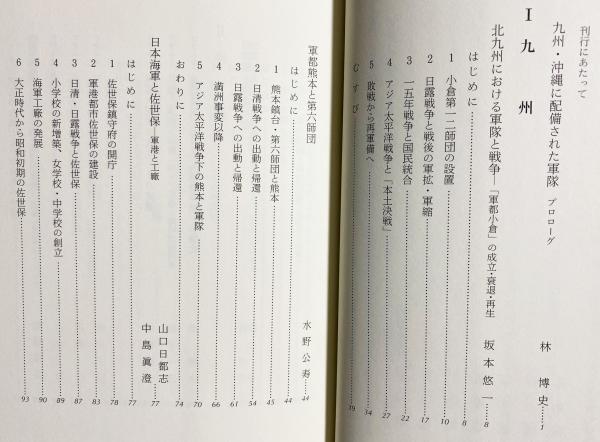 刊行にあたって
九州・沖縄に配備された軍隊 プロローグ 林 博史 1
Ⅰ 九 州
北九州における軍隊と戦争―「軍都小倉」の成立・衰退・再生 坂本悠一 8
はじめに 8
1 小倉第一二師団の設置 10
2 日露戦争と戦後の軍拡・軍縮 17
3 一五年戦争と国民統合 22
4 アジア太平洋戦争と「本土決戦」 27
5 敗戦から再軍備へ 34
むすび 39
軍都熊本と第六師団 水野公寿 44
はじめに 44
1 熊本鎮台・第六師団と熊本 45
2 日清戦争への出動と帰還 54
3 日露戦争への出動と帰還 61
4 満洲事変以降 66
5 アジア太平洋戦争下の熊本と軍隊 70
おわりに 74
日本海軍と佐世保―軍港と工廠 山口日都志 中島眞澄 77
はじめに 77
1 佐世保鎮守府の開庁 78
2 軍港都市佐世保の建設 83
3 日清・日露戦争と佐世保 87
4 小学校の新増築、女学校・中学校の創立 89
5 海軍工廠の発展 90
6 大正時代から昭和初期の佐世保 93